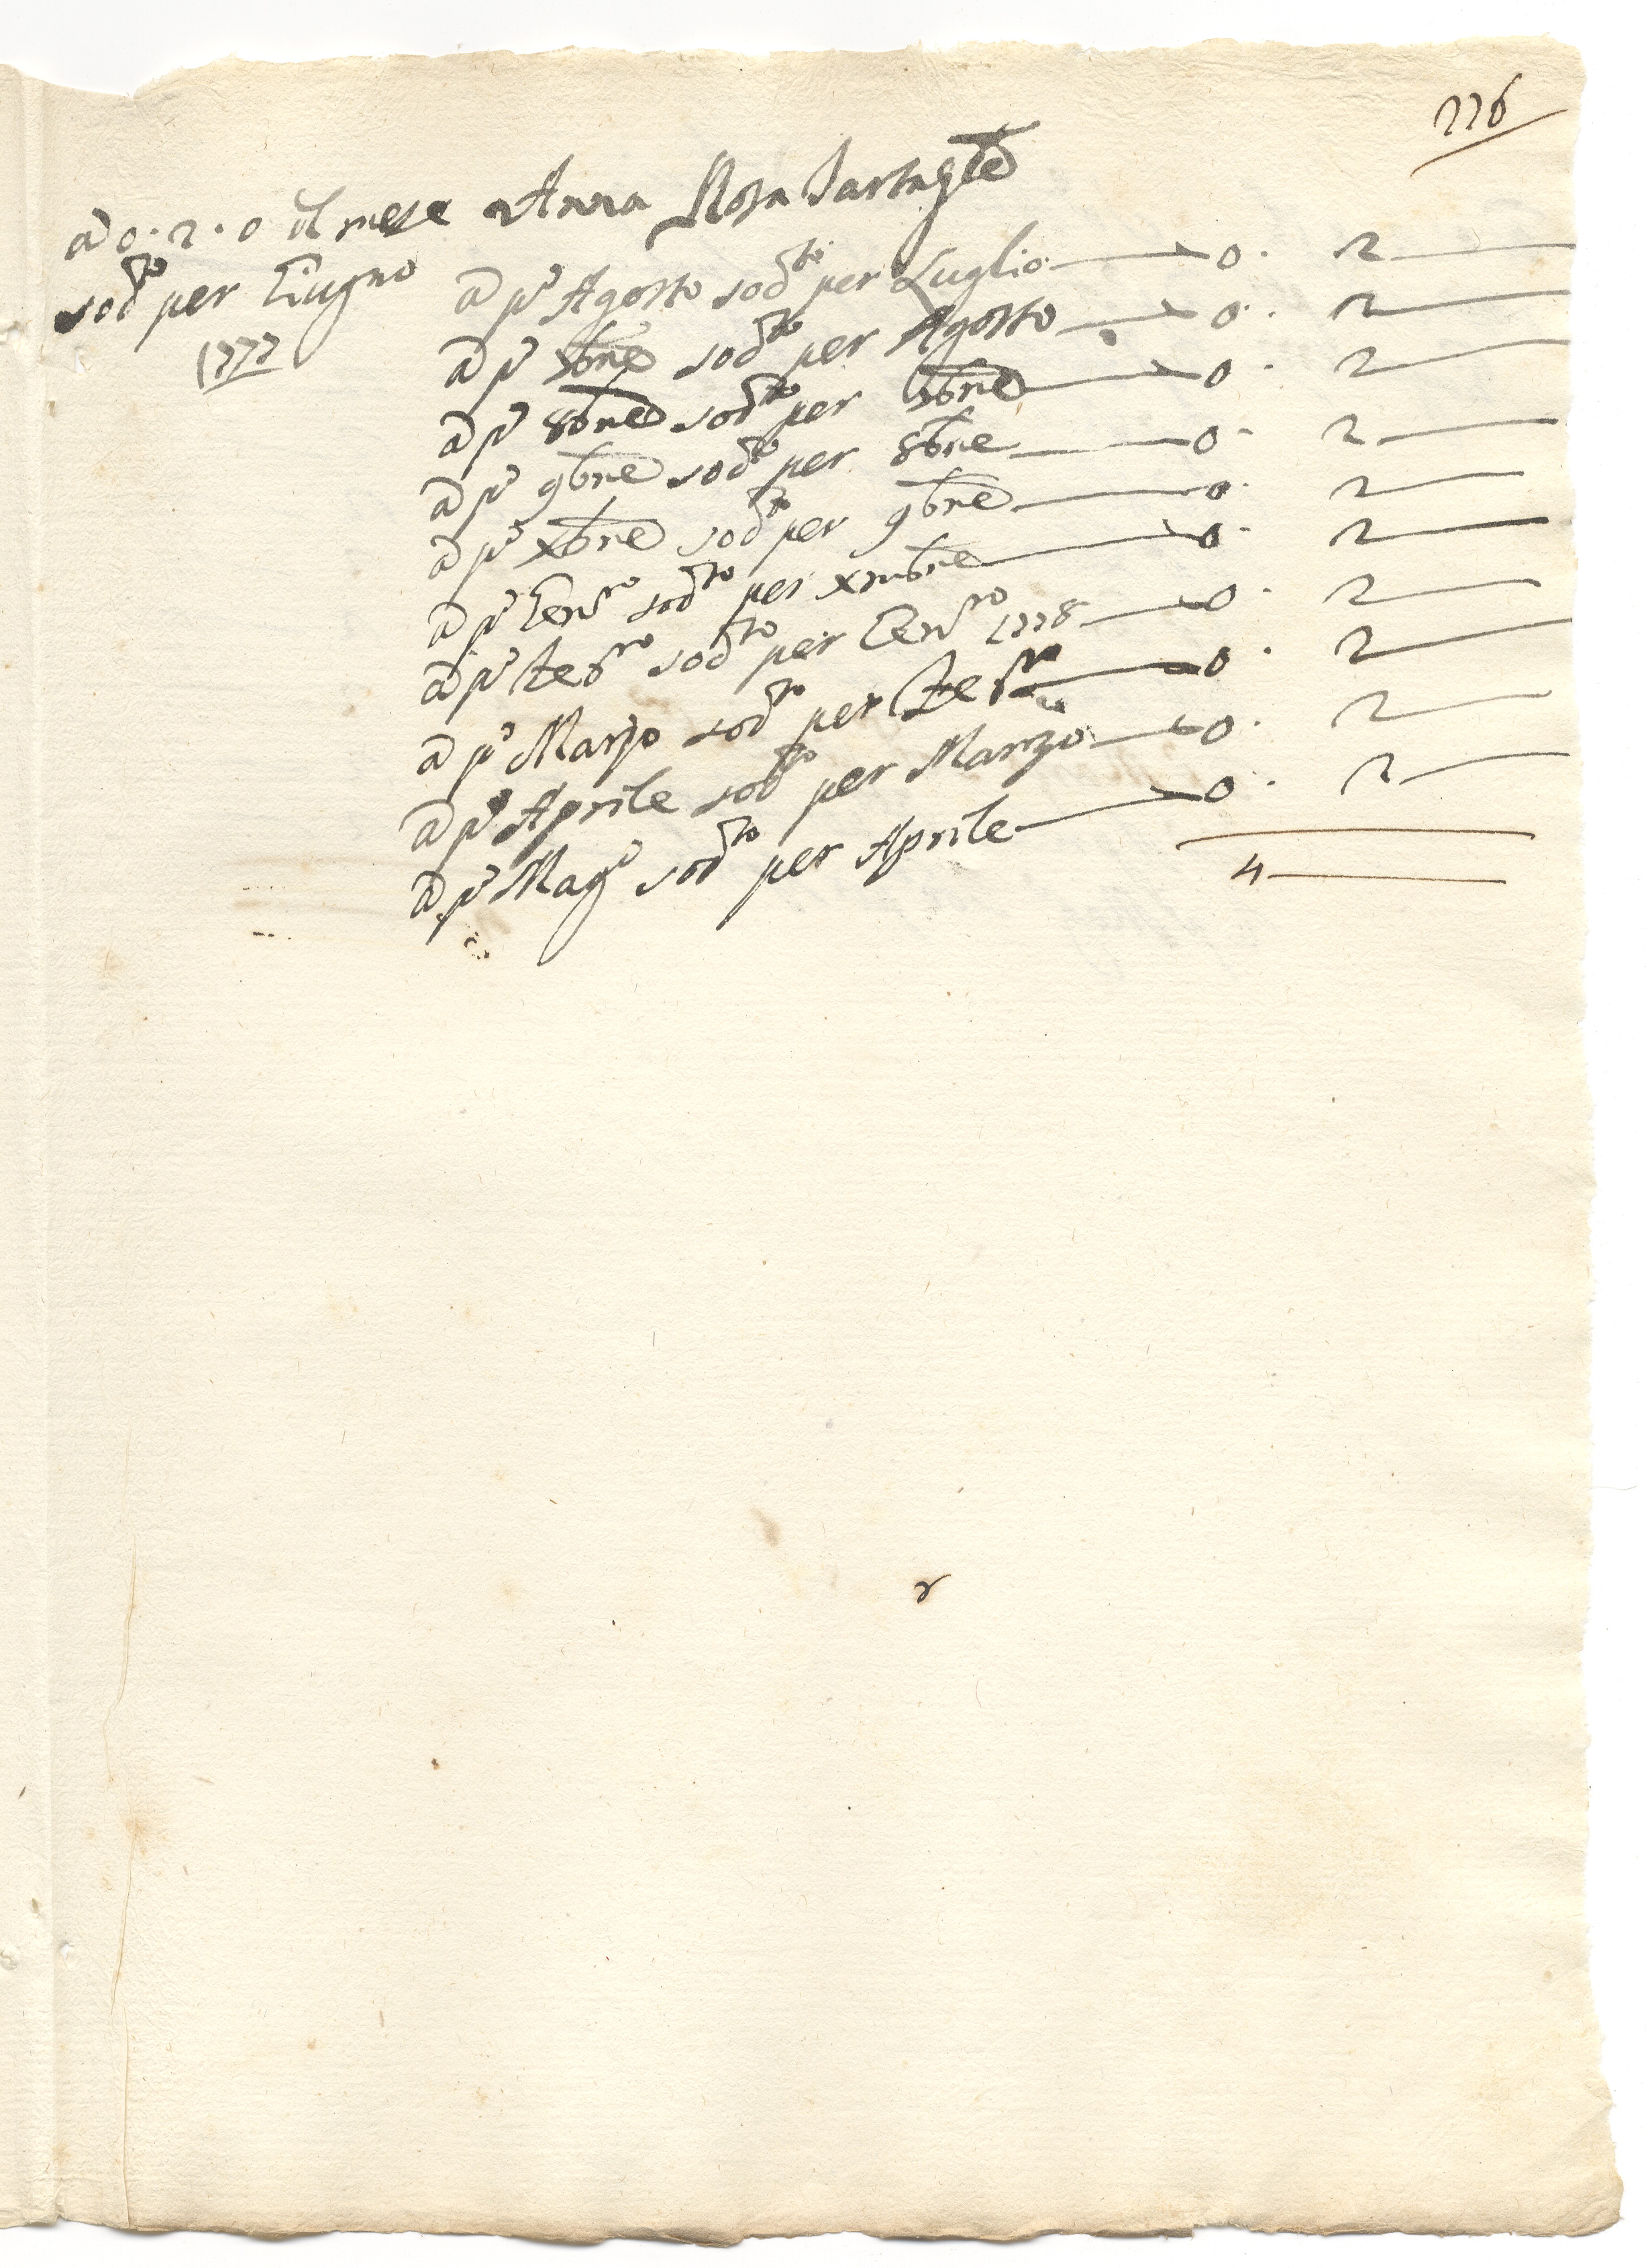 226
à 0.2.0 il mese Anna Rosa Tartagle
sodto per Giugno
1777
a pº Agosto sodto per Luglio — 0. 2 —
a pº 7bre sodto per Agosto — 0. 2 —
a pº 8bre sodto per 7bre — 0. 2 —
a pº 9bre sodto per 8bre — 0. 2 —
a pº xbre sodto per 9bre — 0. 2 —
a pº Genro sodto per xmbre — 0. 2 —
a pº Febro sodto per Genro 1778 — 0. 2 —
a pº Marzo sodto per Febro — 0. 2 —
a pº Aprile sodto per Marzo — 0. 2 —
a pº Magº sodto per Aprile — 0. 2 —
4 —